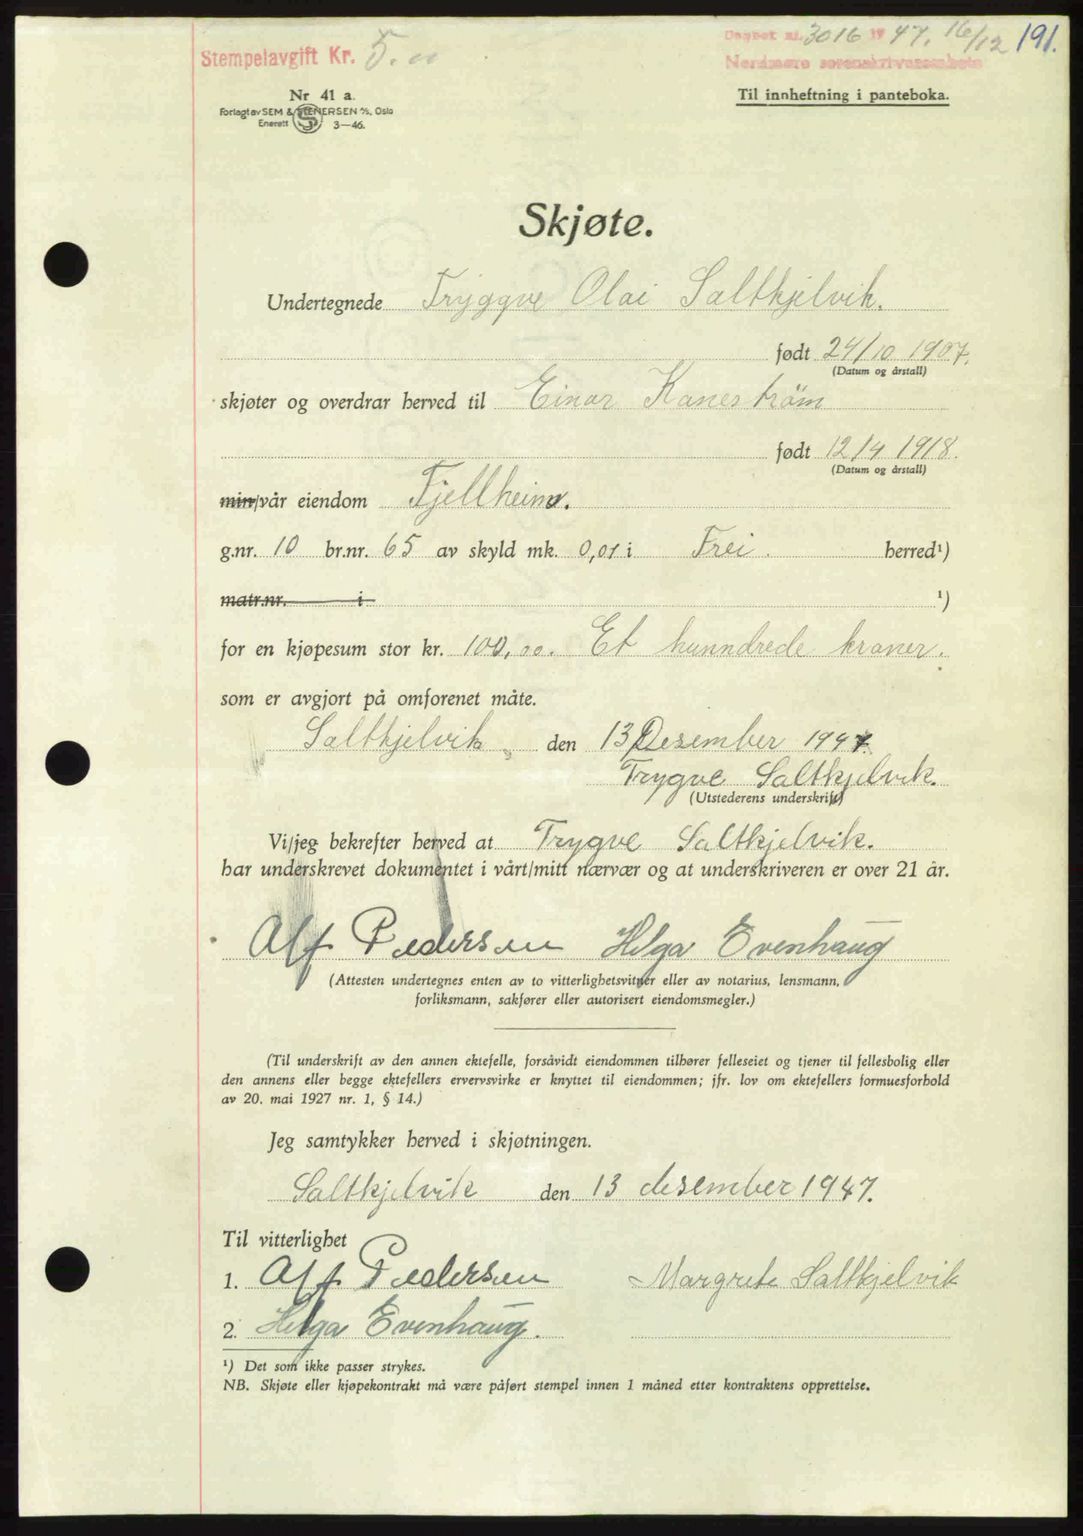 Stempelavgift Kr. 5.00
Dagbok nr. 3016 1947. 16/12 191.
Nordmøre sorenskriverembete
Nr 41 a.
Til innheftning i panteboka.
Forlagt av SEM & STENERSEN A/S, Oslo
Enerett 3—46.
Skjøte.
Undertegnede Tryggve Olai Saltkjelvik.
født 24/10 1907.
(Datum og årstall)
skjøter og overdrar herved til Einar Kanestrøm
født 12/4 1918.
(Datum og årstall)
min/vår eiendom Fjellheim.
g.nr. 10 br.nr. 65 av skyld mk. 0,01 i Frei. herred¹)
matr.nr. i ¹)
for en kjøpesum stor kr. 100,00. Et hunndrede kroner.
som er avgjort på omforenet måte.
Saltkjelvik, den 13 Desember 1947.
Trygve Saltkjelvik.
(Utstederens underskrift)
Vi/jeg bekrefter herved at Trygve Saltkjelvik.
har underskrevet dokumentet i vårt/mitt nærvær og at underskriveren er over 21 år.
Alf Pedersen Helga Evenhaug
(Attesten undertegnes enten av to vitterlighetsvitner eller av notarius, lensmann,
forliksmann, sakfører eller autorisert eiendomsmegler.)
(Til underskrift av den annen ektefelle, forsåvidt eiendommen tilhører felleseiet og tjener til fellesbolig eller
den annens eller begge ektefellers ervervsvirke er knyttet til eiendommen; jfr. lov om ektefellers formuesforhold
av 20. mai 1927 nr. 1, § 14.)
Jeg samtykker herved i skjøtningen.
Saltkjelvik den 13 desember 1947.
Til vitterlighet
1. Alf Pedersen Margrete Saltkjelvik
2. Helga Evenhaug.
¹) Det som ikke passer strykes.
NB. Skjøte eller kjøpekontrakt må være påført stempel innen 1 måned etter kontraktens opprettelse.